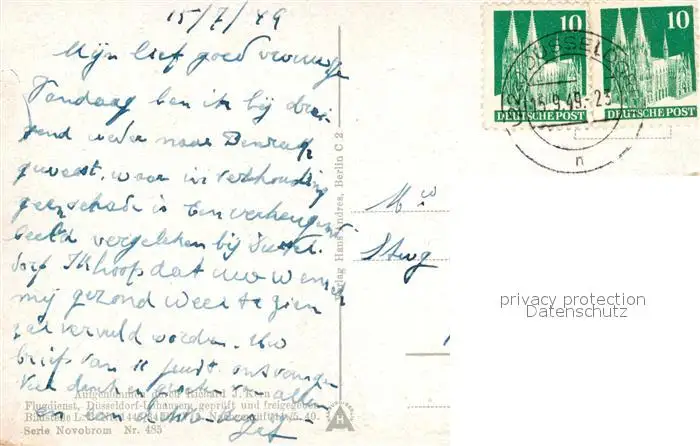 15/7/49
Mijn lief goed vrouwtje
Vandaag ben ik bij
weder naar Benrath
geweest, waar in verhouding
geen schade is Een verheugend
beeld vergeleken bij Dussel-
dorf. Ik hoop dat uw wensch
mij gezond weer te zien
zal vervuld worden. Uw
brief van 11 ontvangen
Veel groeten aan allen
en een
10 10
DÜSSELDORF
15.9.49.-23
n
DEUTSCHE POST DEUTSCHE POST
Verlag Hans Andres, Berlin C 2
Mw
privacy protection
Datenschutz
Aufgenommen durch Richard J. Kern
Flugdienst, Düsseldorf-Lohausen, geprüft und freigegeben
Serie Novobrom Nr. 485